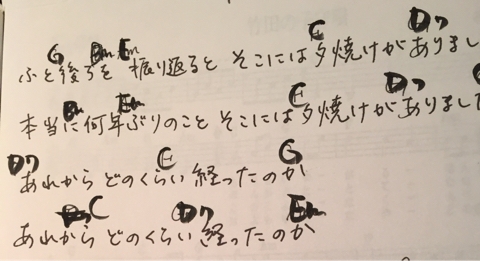 G Bm Em E D7
ふと後ろを 振り返ると そこには夕焼けがありまし
Bm Em E D7
本当に何年ぶりのこと そこには夕焼けがありました
D7 E G
あれから どのくらい 経ったのか
C D7 Em
あれから どのくらい 経ったのか